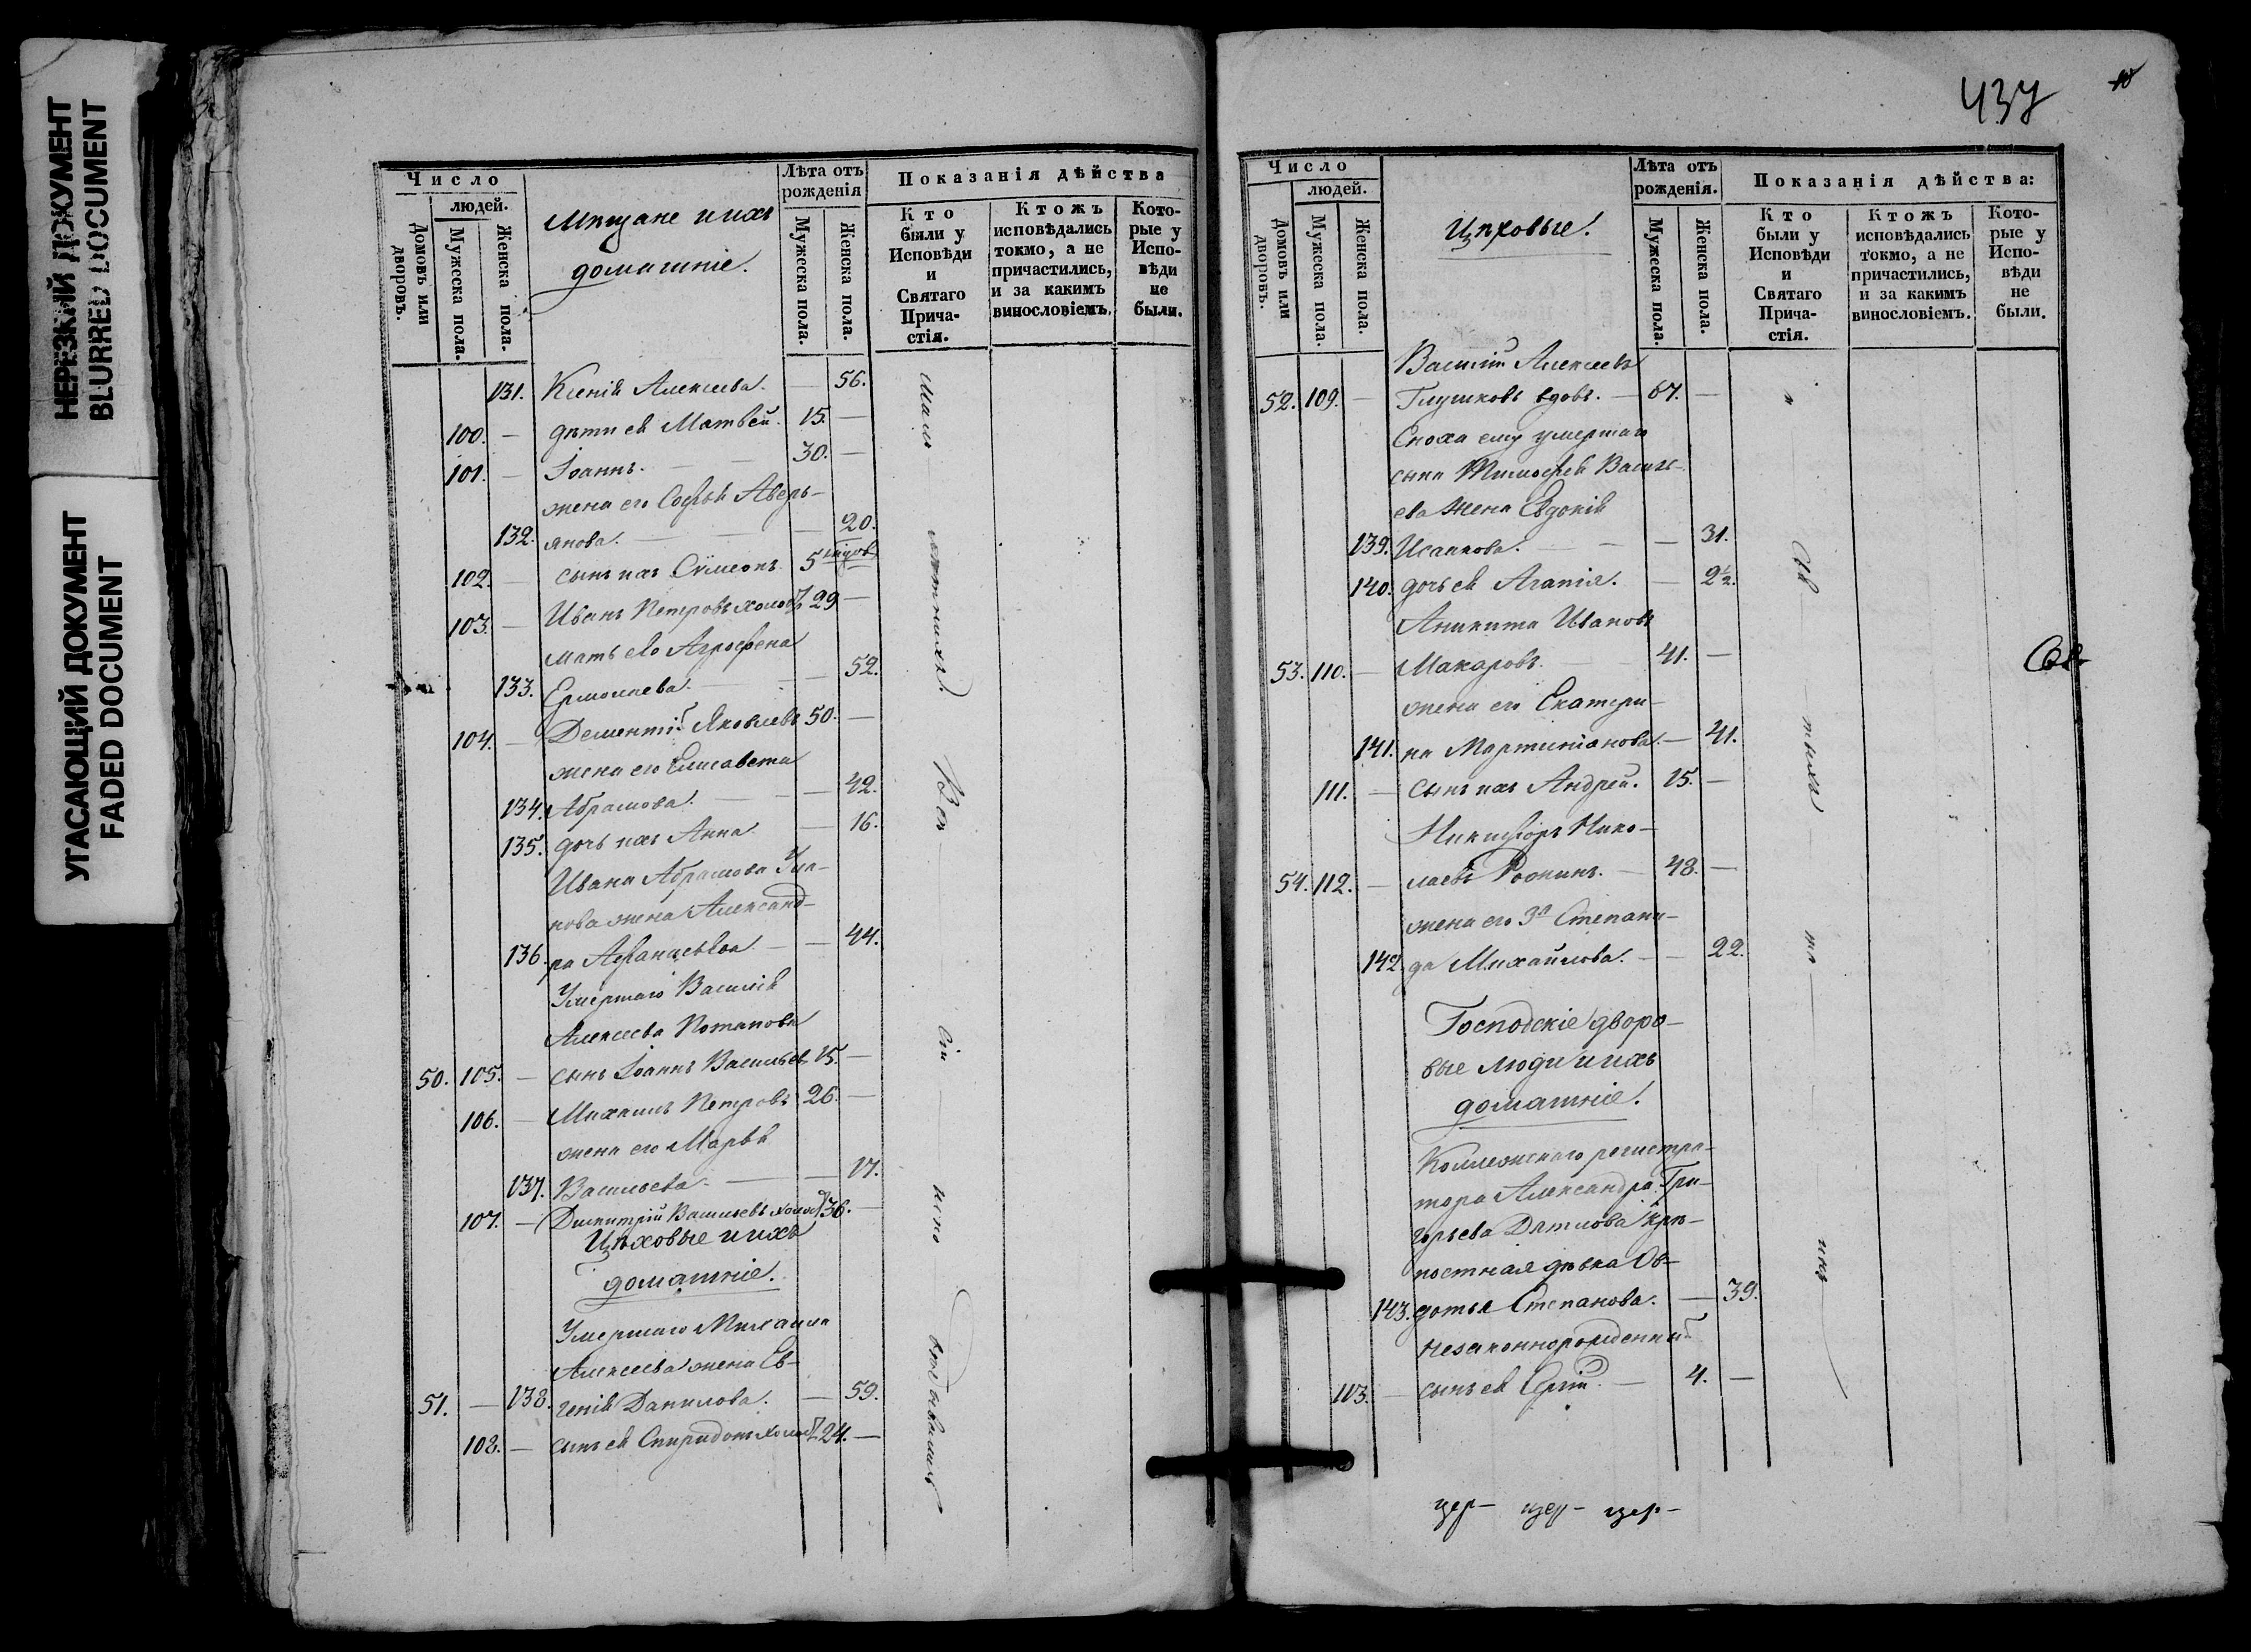 НЕРЕЗКИЙ ДОКУМЕНТ
BLURRED DOCUMENT
УГАСАЮЩИЙ ДОКУМЕНТ
FADED DOCUMENT
Число
людей.
Домовъ или дворовъ.
Мужеска пола.
Женска пола.
Мѣщане и ихъ
домашніе.
Лѣта отъ рожденія
Мужеска пола.
Женска пола.
Показанія дѣйства
Кто были у Исповѣди и Святаго Прича-стія.
Ктожъ исповѣдались токмо, а не причастились, и за какимъ винословіемъ.
Кото-рые у Испо-вѣди не были.
131. Ксенія Алексеева. — 56.
100. — дѣти ея Матвѣй. 15. —
101. — Іоаннъ. — 30. —
жена его Софья Аверь-
132. янова. — 20.
102. — сынъ ихъ Сѵмеонъ. 5
103. — Иванъ Петровъ холос. 29 —
мать его Агрофена
133. Ермолаева. — 52.
104. — Дементій Яковлевъ 50. —
жена его Елисавета
134. Абрамова. — 42.
135. дочь ихъ Анна — 16.
Ивана Абрамова
нова жена Александ-
136. ра Афанасьева — 44.
Умершаго Василія
Алексеева Потапова
50. 105. — сынъ Іоаннъ Васильев. 15. —
106. — Михаилъ Петровъ 26. —
жена его Марья
137. Васильева. — 17.
107. — Димитрій Васильевъ холос. 36. —
Цѣховые и ихъ
домашніе.
Умершаго Михаила
Алексеева жена Ев-
51. — 138. генія Данилова. — 59.
108. — сынъ ея Спиридонъ холос. 24. —
437
10
Число
людей.
Домовъ или дворовъ.
Мужеска пола.
Женска пола.
Цѣховые.
Лѣта отъ рожденія.
Мужеска пола.
Женска пола.
Показанія дѣйства:
Кто были у Исповѣди и Святаго Прича-стія.
Ктожъ исповѣдались токмо, а не причастились, и за какимъ винословіемъ.
Кото-рые у Испо-вѣди не были.
Василій Алексеевъ
52. 109. — Глушковъ вдовъ. — 67. —
Сноха ему умершаго
сына Тимофея Василь-
ева жена Евдокія
139. Исаакова. — 31.
140. дочь ея Агапія. — 2½.
Аникита Ивановъ
53. 110. — Макаровъ. 41. —
жена его Екатери-
141. на Мартиніанова. — 41.
111. — сынъ ихъ Андрей. 15. —
Никифоръ Нико-
54. 112. — лаевъ — 48. —
жена его 3я Степани-
142. да Михайлова. — 22.
Господскіе дворо-
вые люди и ихъ
домашніе.
Коллежскаго регистра-
тора Александра Гри-
горьева Дятлова крѣ-
постная дѣвка Ов-
143. дотья Степанова. — 39.
Незаконнорожденный
113. — сынъ ея Сергій. — 4. —
цер- цер- цер-